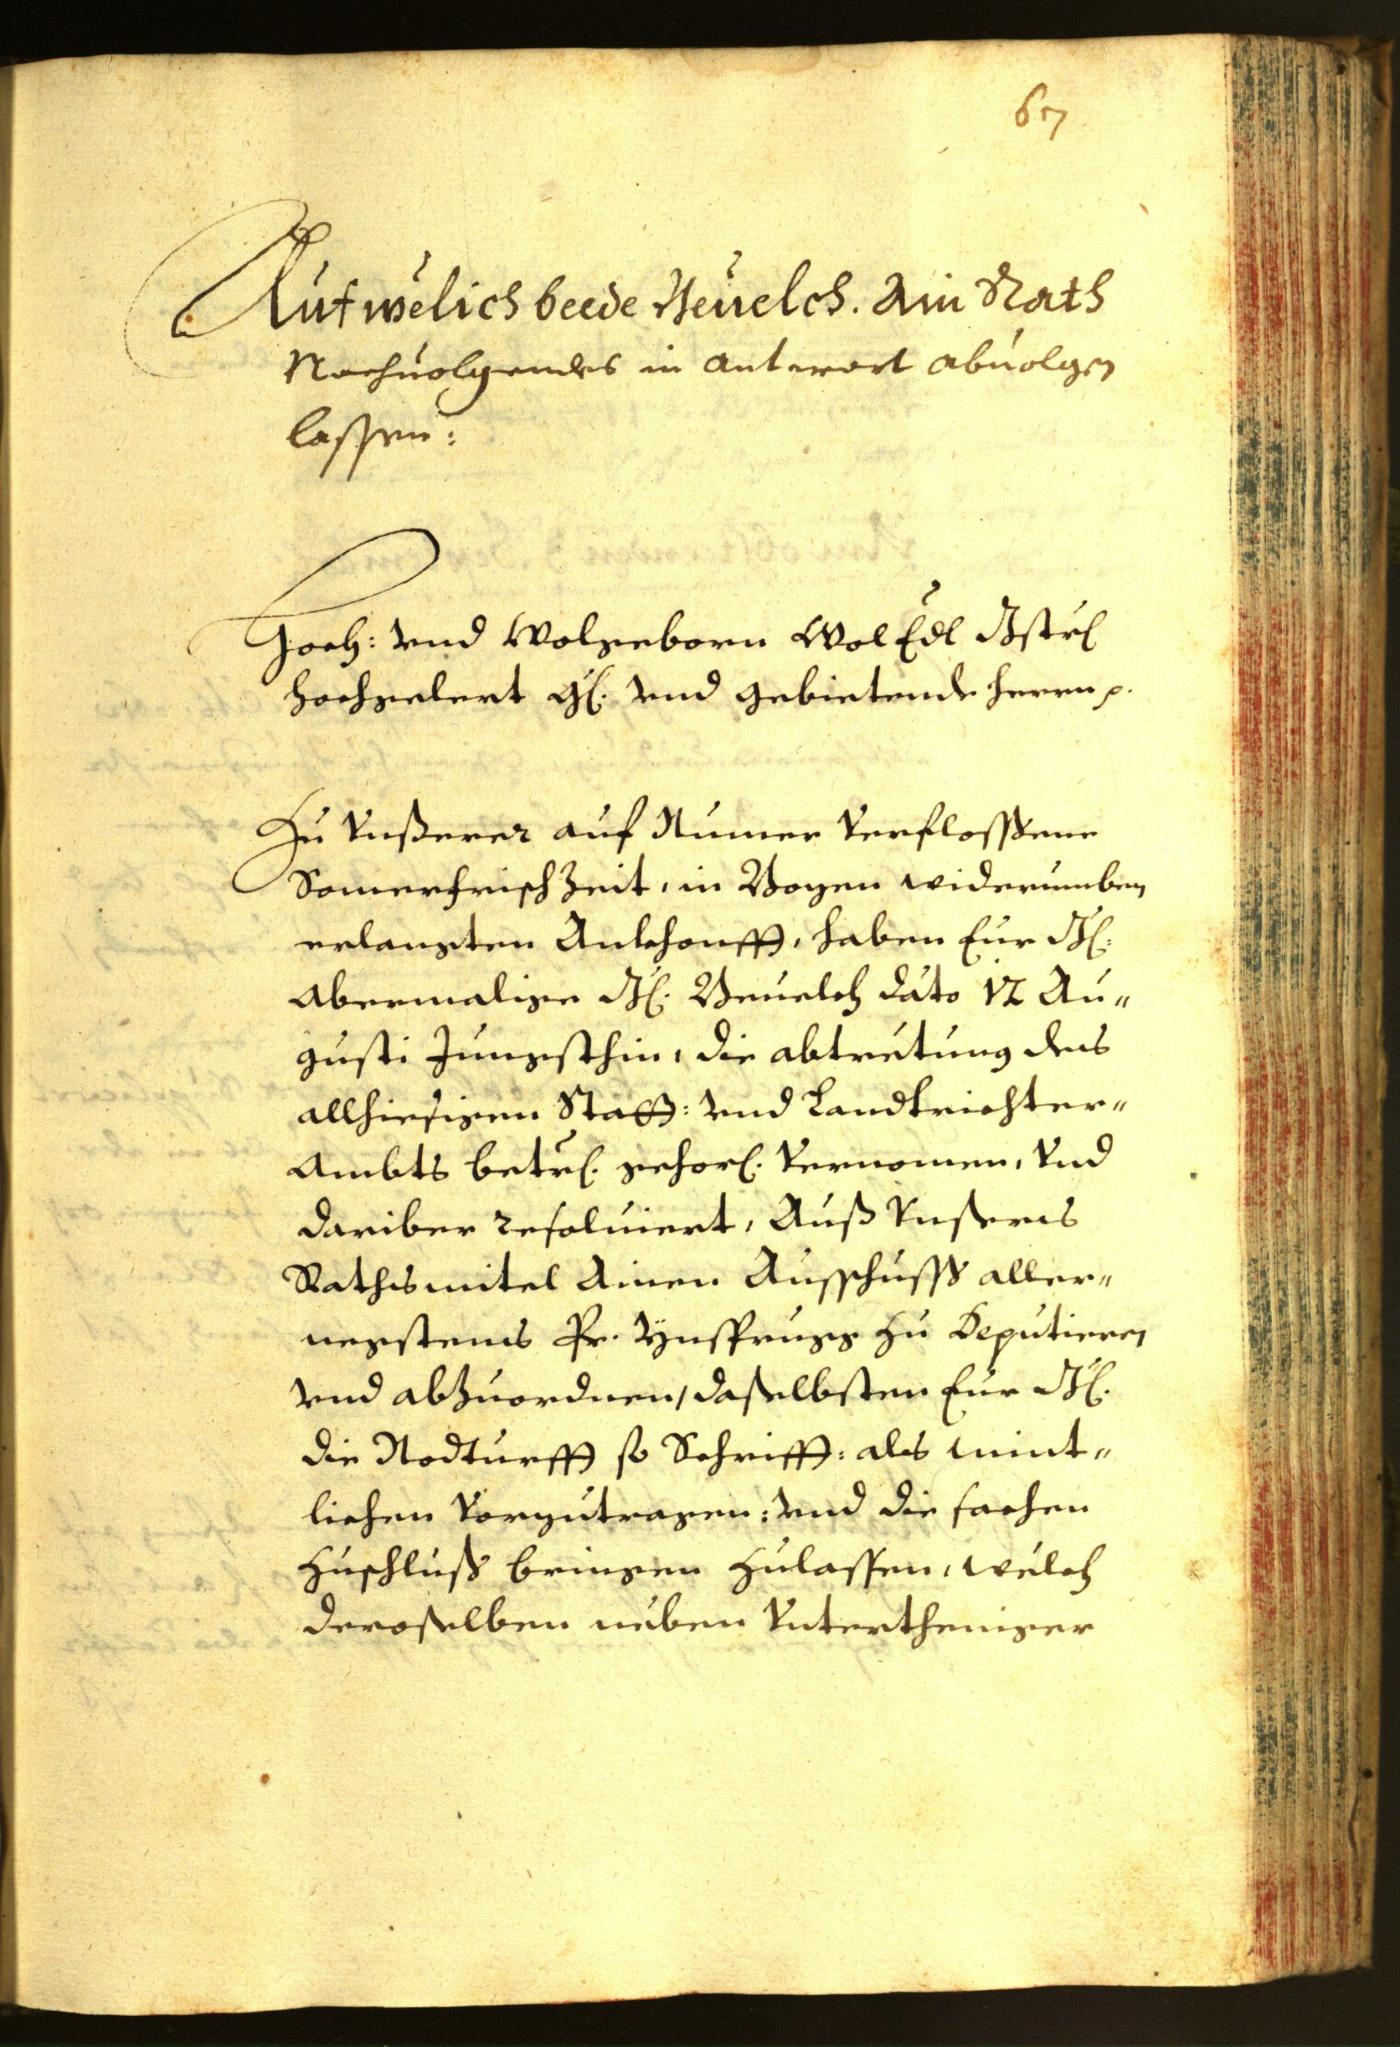 67
Auf welich beede Beuelch. Ain Rath
Nachuolgendes in antwort abuolgen
lassen:
Hoch: vnd Wolgeborn Wol Edl Gstrl
hochgelert Gl. vnd gebietende herrn p.
Zu Vnßerer auf Numer Verflosßene
Somerfrisch Zeit, in Bozen widerumben
erlangten Ankhonfft, haben Eur Gl:
abermalige Gl. Beuelch dato 12 Au-
gusti Jungsthin, die abtretung des
allhiesigen Statt: vnd Landtrichter-
Ambts betrl. gehorl. Vernomen, Vnd
dariber resoluiert, Auß Vnßers
Rathsmitel Ainen Ausschusß aller-
negstens Pr. Ynsprugg zu Deputieren
vnd abZuordnen, daßelbsten Eur Gl.
die Nodturfft so Schrifft: als mint-
lichen Vorzutragen: vnd die sachen
Zuschluß bringen Zulassen, welch
deroßelben neben Vntertheniger